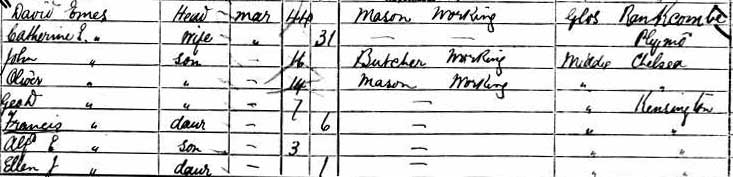 David Emes Head mar 44 Mason Working Glos Rendcombe
Catherine E. " Wife " 31 — — Plymo
John " son — 16 Butcher Working Middx Chelsea
Oliver " " — 14 Mason Working " "
Geo D " " — 7 — " Kensington
Francis " daur — 6 — " "
Alfd E " son — 3 — " "
Ellen J " daur — 1 — " "